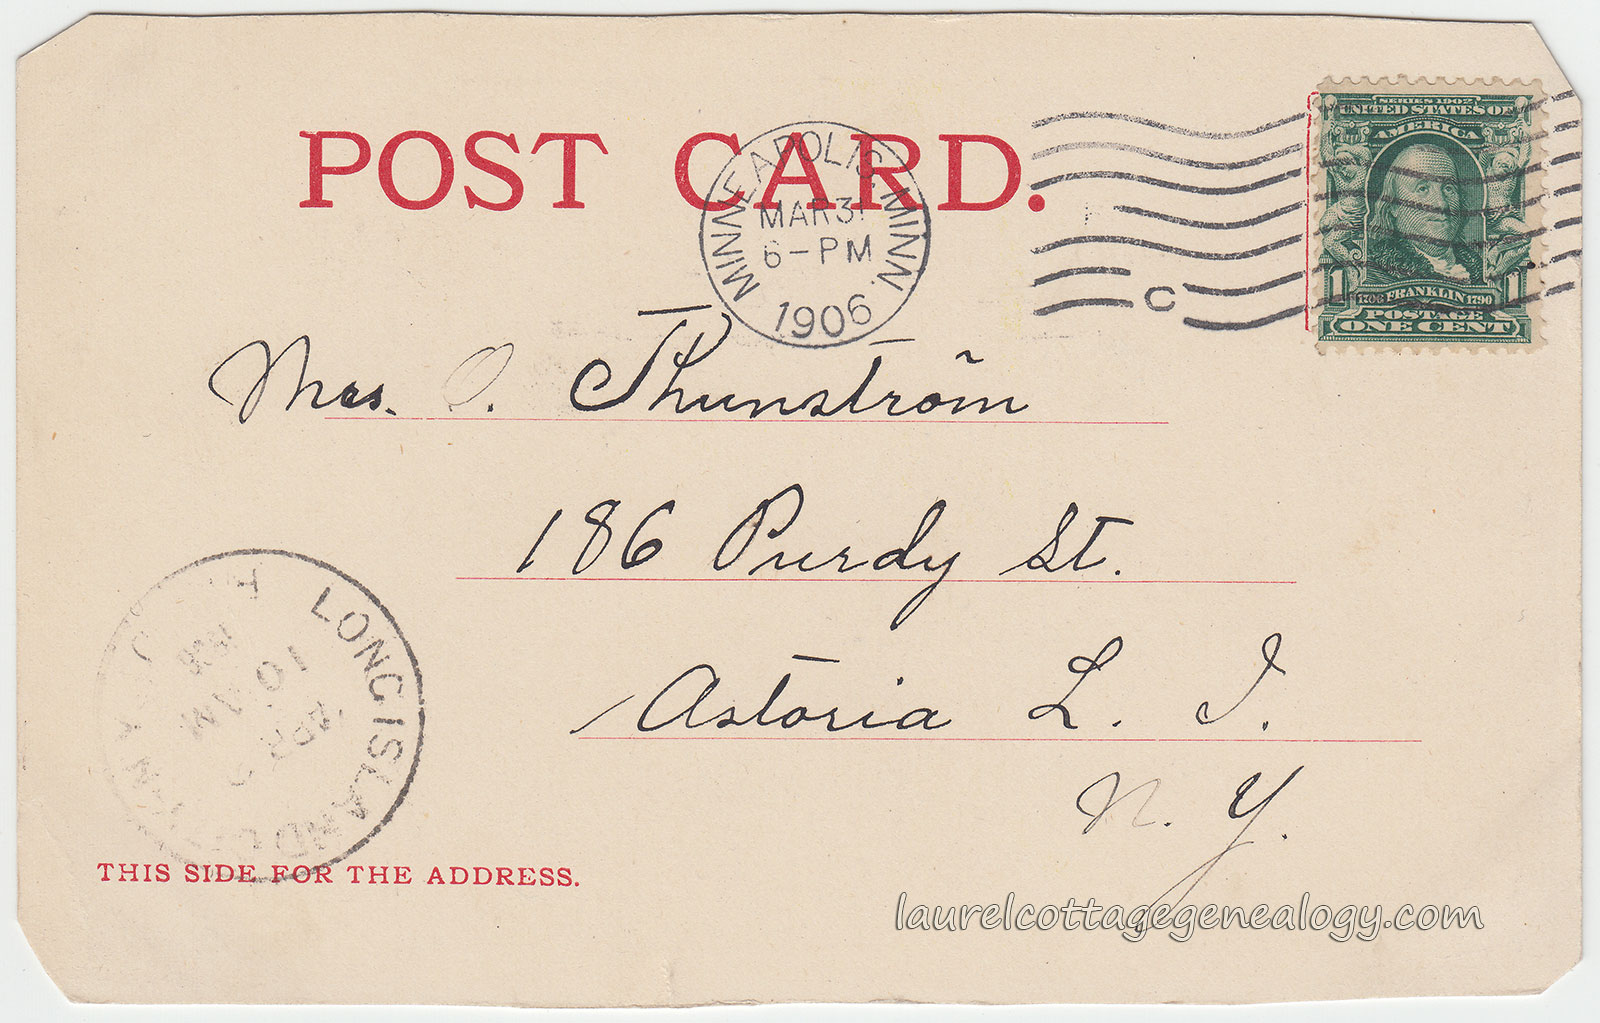 POST CARD.
MINNEAPOLIS, MINN.
MAR 31
6-PM
1906
C
SERIES 1902
UNITED STATES OF
AMERICA
1 1706 FRANKLIN 1790 1
POSTAGE
ONE CENT
Mrs. O. Thunström
186 Purdy St.
Astoria L. I.
N. Y.
LONG ISLAND
APR
10 AM
THIS SIDE FOR THE ADDRESS.
laurelcottagegenealogy.com